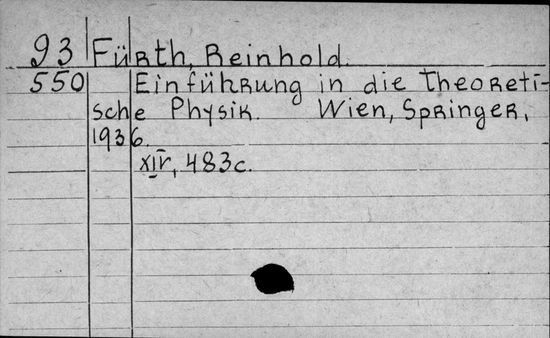 93 Fürth, Reinhold.
550 Einführung in die Theoreti-
sche Physik. Wien, Springer,
1936.
XIV, 483c.